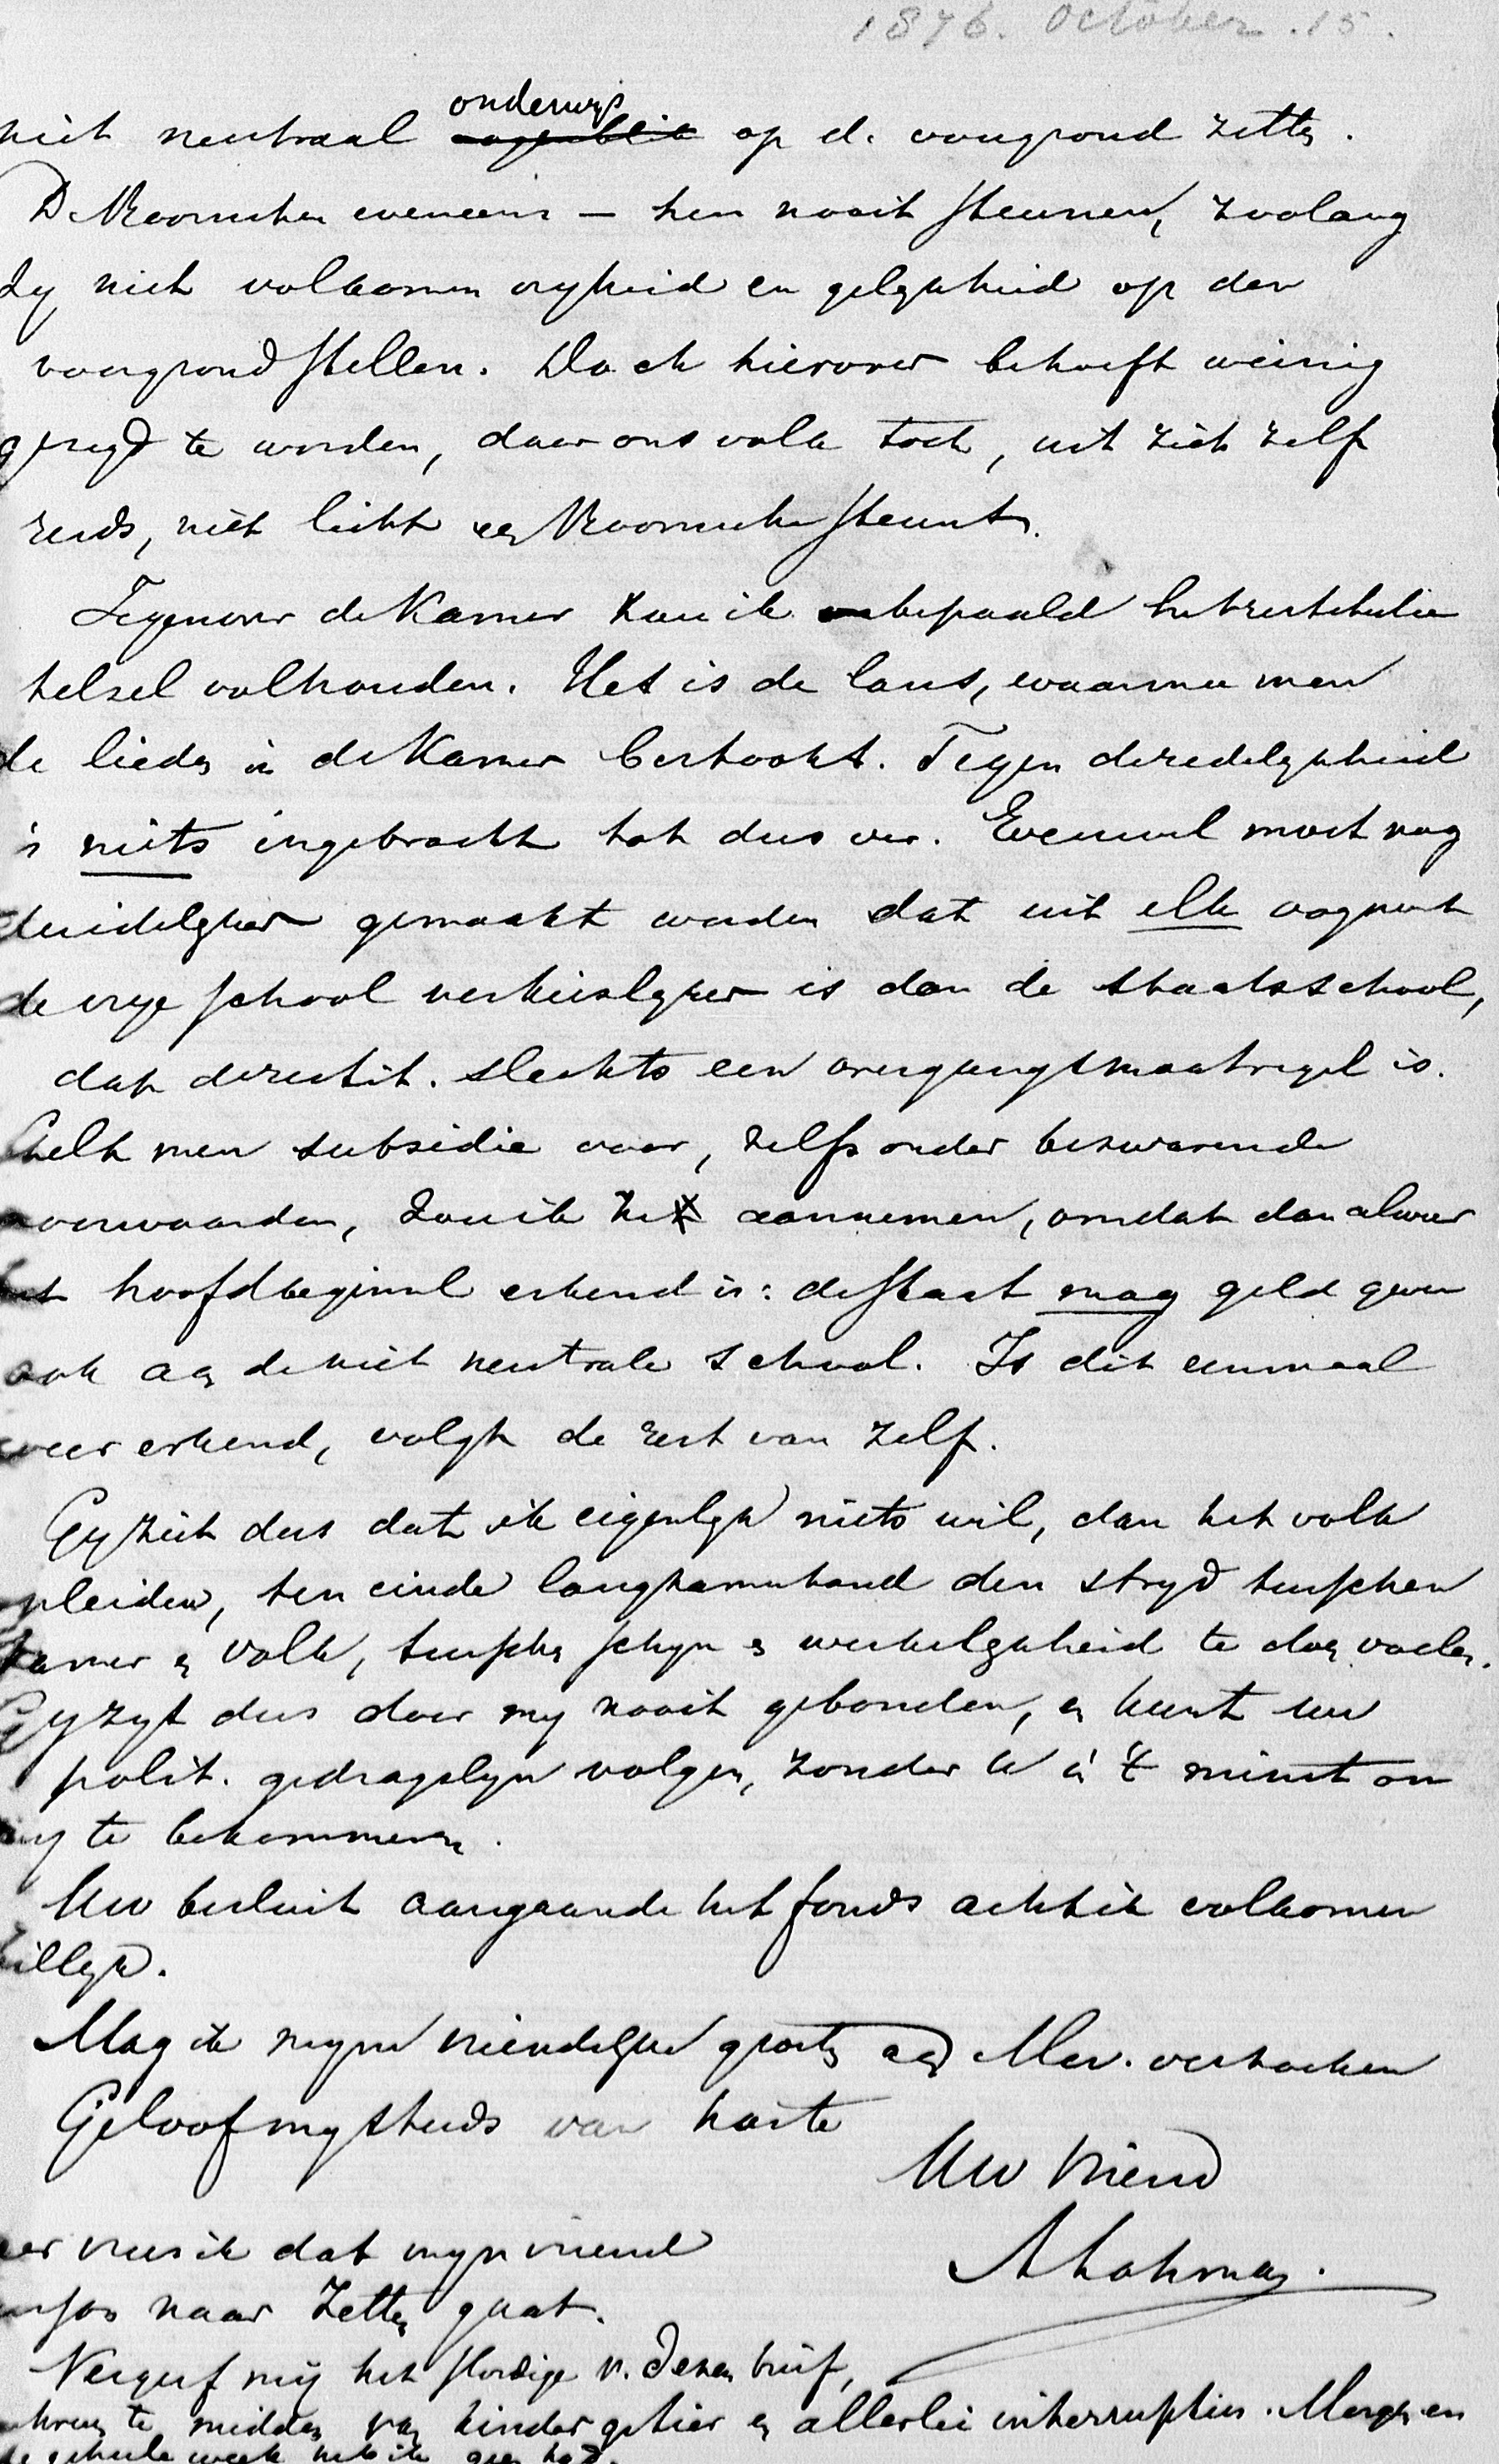 1876. October. 15.
niet neutraal onderwijs op de voorgrond zetten.
De Roomschen eveneens — hen nooit steunen, zoolang
zy niet volkomen vryheid en gelykheid op den
voorgrond stellen. Doch hierover behoeft weinig
gezegd te worden, daar ons volk toch, uit zich zelf
reeds, niet licht een Roomsche steunt.
Tegenover de Kamer zou ik bepaald het restitutie
stelsel volhouden. Het is de lans, waarmee men
de lieden in de Kamer bestookt. Tegen de redelykheid
is niets ingebracht tot dus ver. Evenwel moet nog
duidelyker gemaakt worden dat uit elk oogpunt
de vrye school verkieslyker is dan de staatsschool,
dat de restit. slechts een overgangsmaatregel is.
Stelt men subsidie voor, zelfs onder bezwarende
voorwaarden, zou ik het aannemen, omdat dan alweer
het hoofdbeginsel erkend is: de staat mag geld geven
ook aan de niet neutrale school. Is dit eenmaal
weer erkend, volgt de rest van zelf.
Gy ziet dus dat ik eigenlyk niets wil, dan het volk
opleiden, ten einde langzamerhand den stryd tusschen
Kamer en volk, tusschen schyn en werkelykheid te doen voelen.
Gy zyt dus door my nooit gebonden, en kunt uw
polit. gedragslyn volgen, zonder U in 't minst om
my te bekommeren.
Uw besluit aangaande het fonds acht ik volkomen
billyk.
Mag ik myne vriendelyke groeten aan Mev. verzoeken
Geloof my steeds van harte
Uw vriend
A Lohman.
vrees ik dat myn vriend
naar Zetten gaat.
Vergeef mij het slordige v. dezen brief,
te midden van kindergetier en allerlei interrupties. Morgen en
de geheele week heb ik geen tyd.